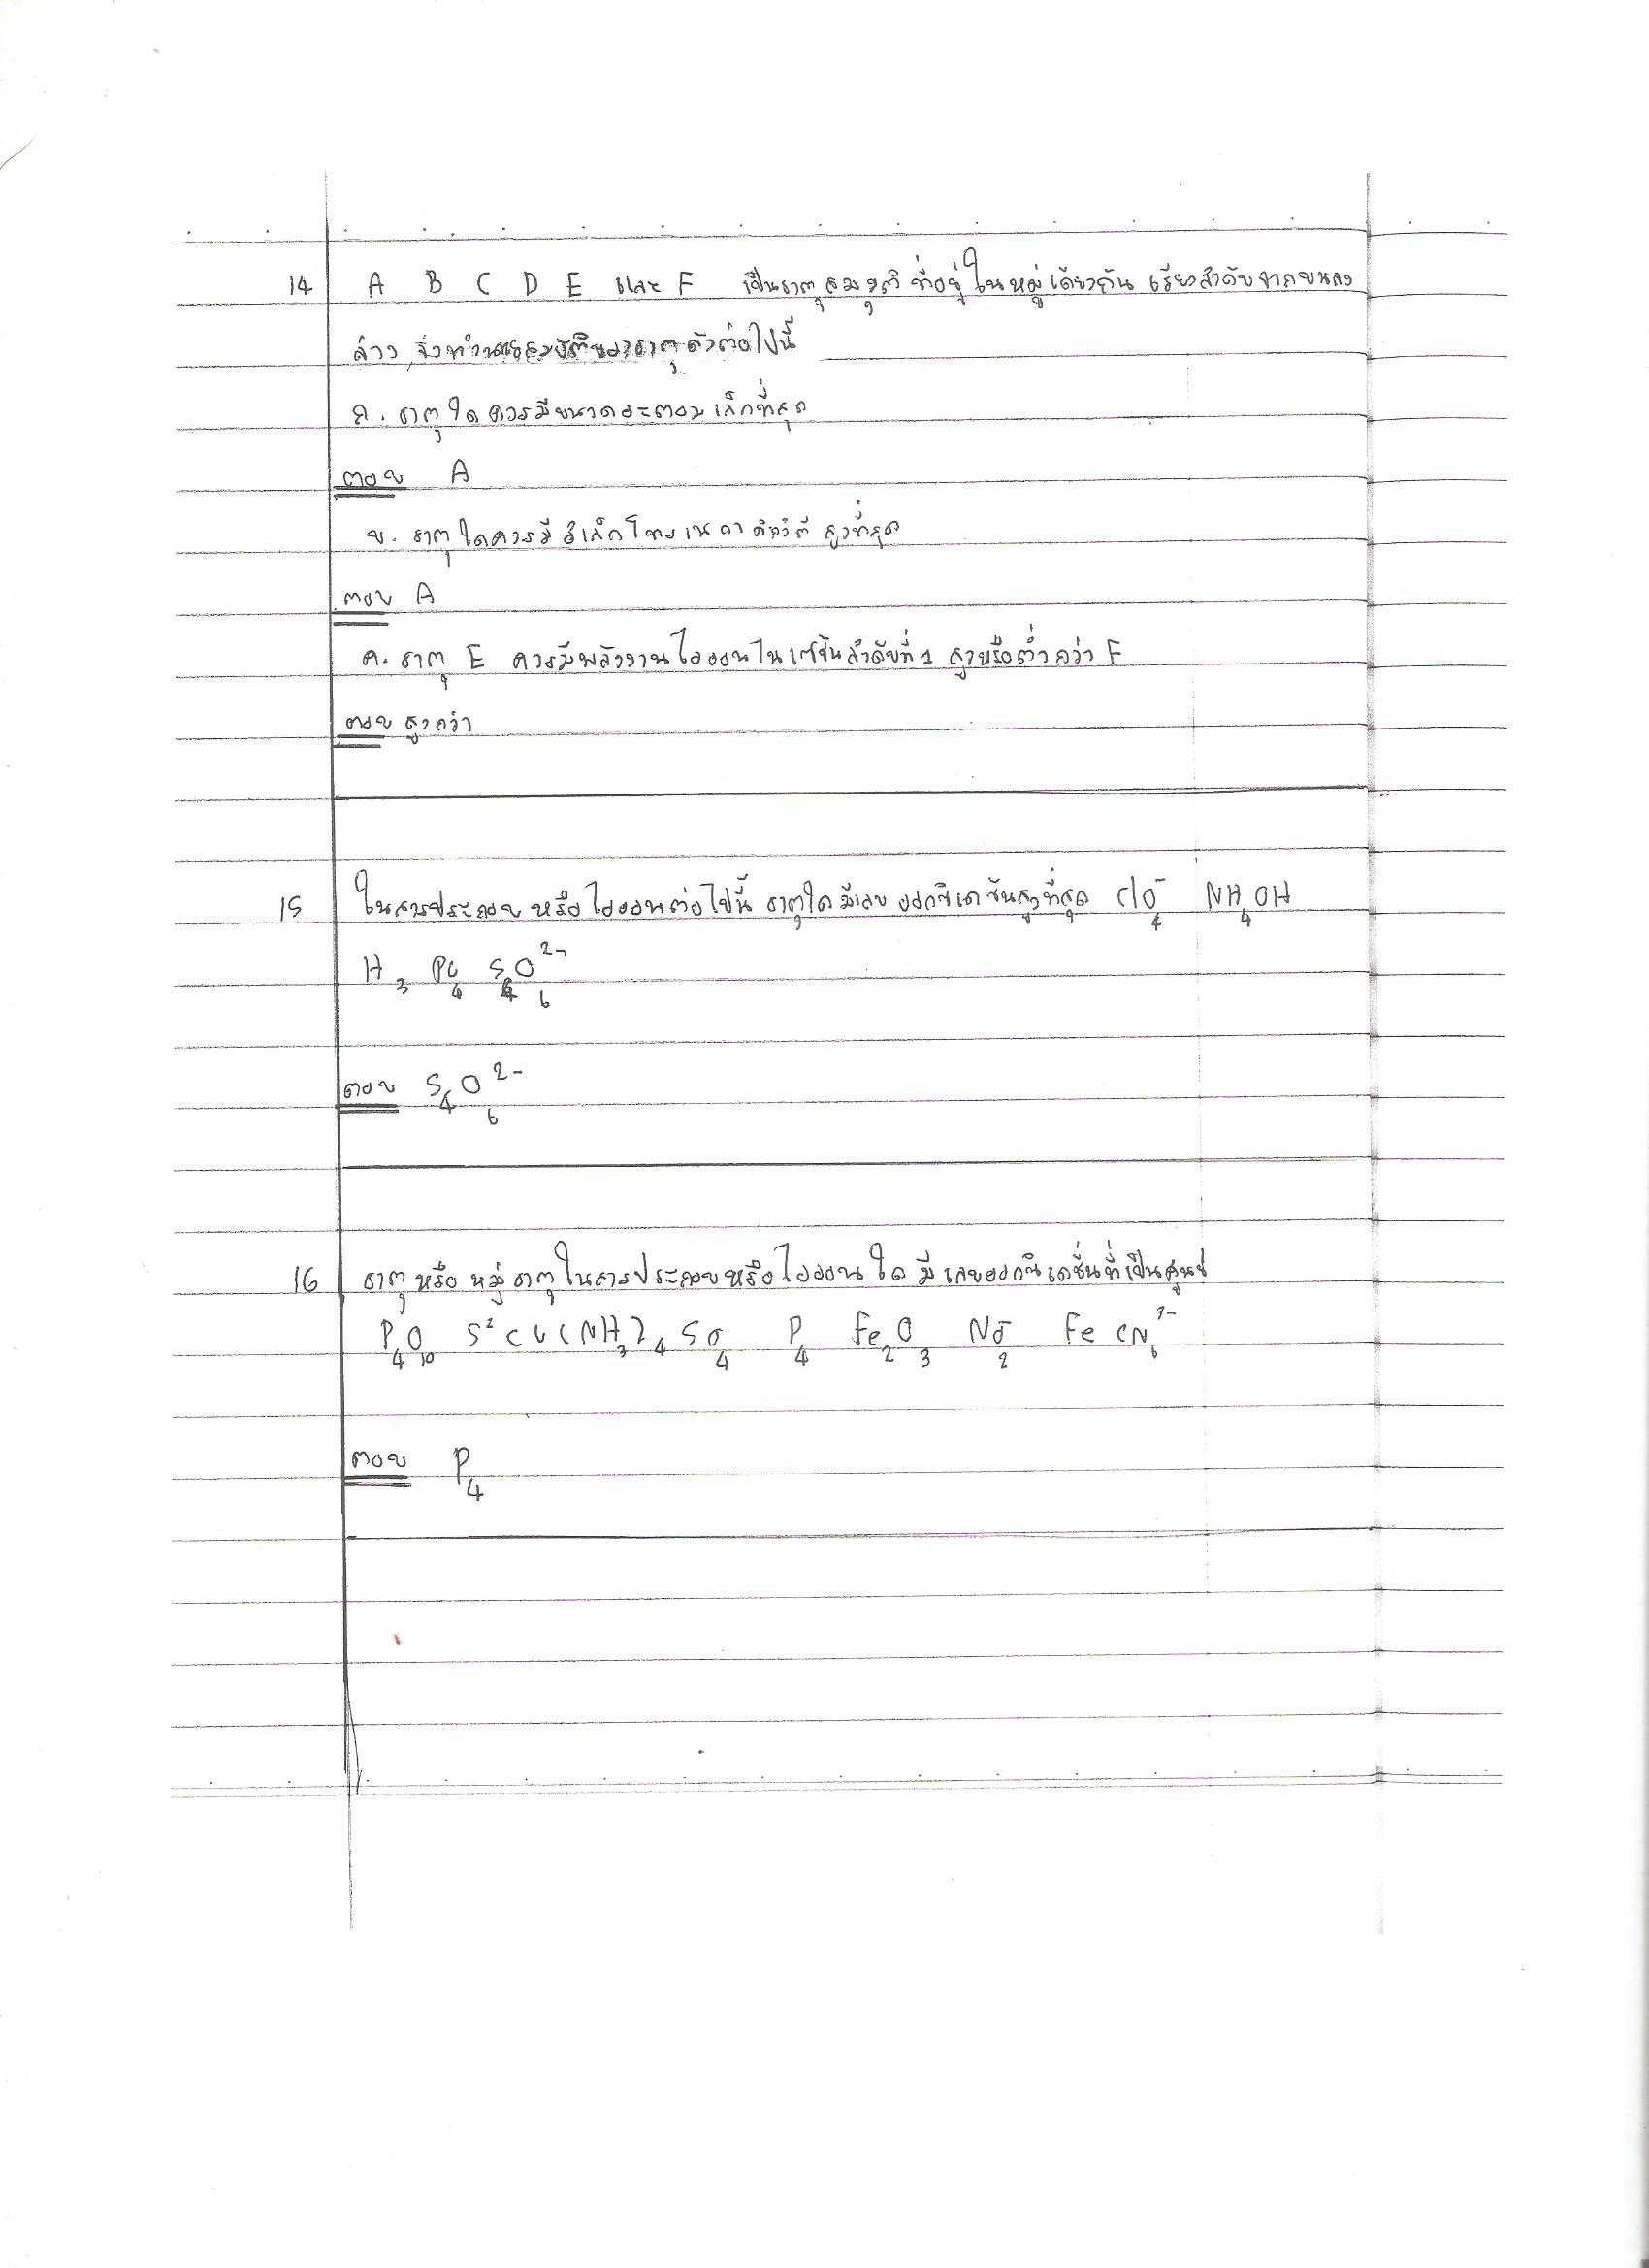 14 A B C D E และ F เป็นธาตุสมมุติ ที่อยู่ในหมู่เดียวกัน เรียงลำดับจากบนลง
ล่าง จงทำนายสมบัติของธาตุดังต่อไปนี้
ก. ธาตุใดควรมีขนาดอะตอมเล็กที่สุด
ตอบ A
ข. ธาตุใดควรมีอิเล็กโทรเนกาติวิตี สูงที่สุด
ตอบ A
ค. ธาตุ E ควรมีพลังงานไอออนไนเซชันลำดับที่ 1 สูงหรือต่ำกว่า F
ตอบ สูงกว่า
15 ในสารประกอบ หรือไอออนต่อไปนี้ ธาตุใดมีเลขออกซิเดชันสูงที่สุด ClO₄⁻ NH₄OH
H₃PO₄ S₄O₆²⁻
ตอบ S₄O₆²⁻
16 ธาตุหรือ หมู่ธาตุในสารประกอบหรือไอออนใด มีเลขออกซิเดชันที่เป็นศูนย์
P₄O₁₀ S² Cu(NH₃)₄SO₄ P₄ Fe₂O₃ NO₂⁻ FeCN₆³⁻
ตอบ P₄